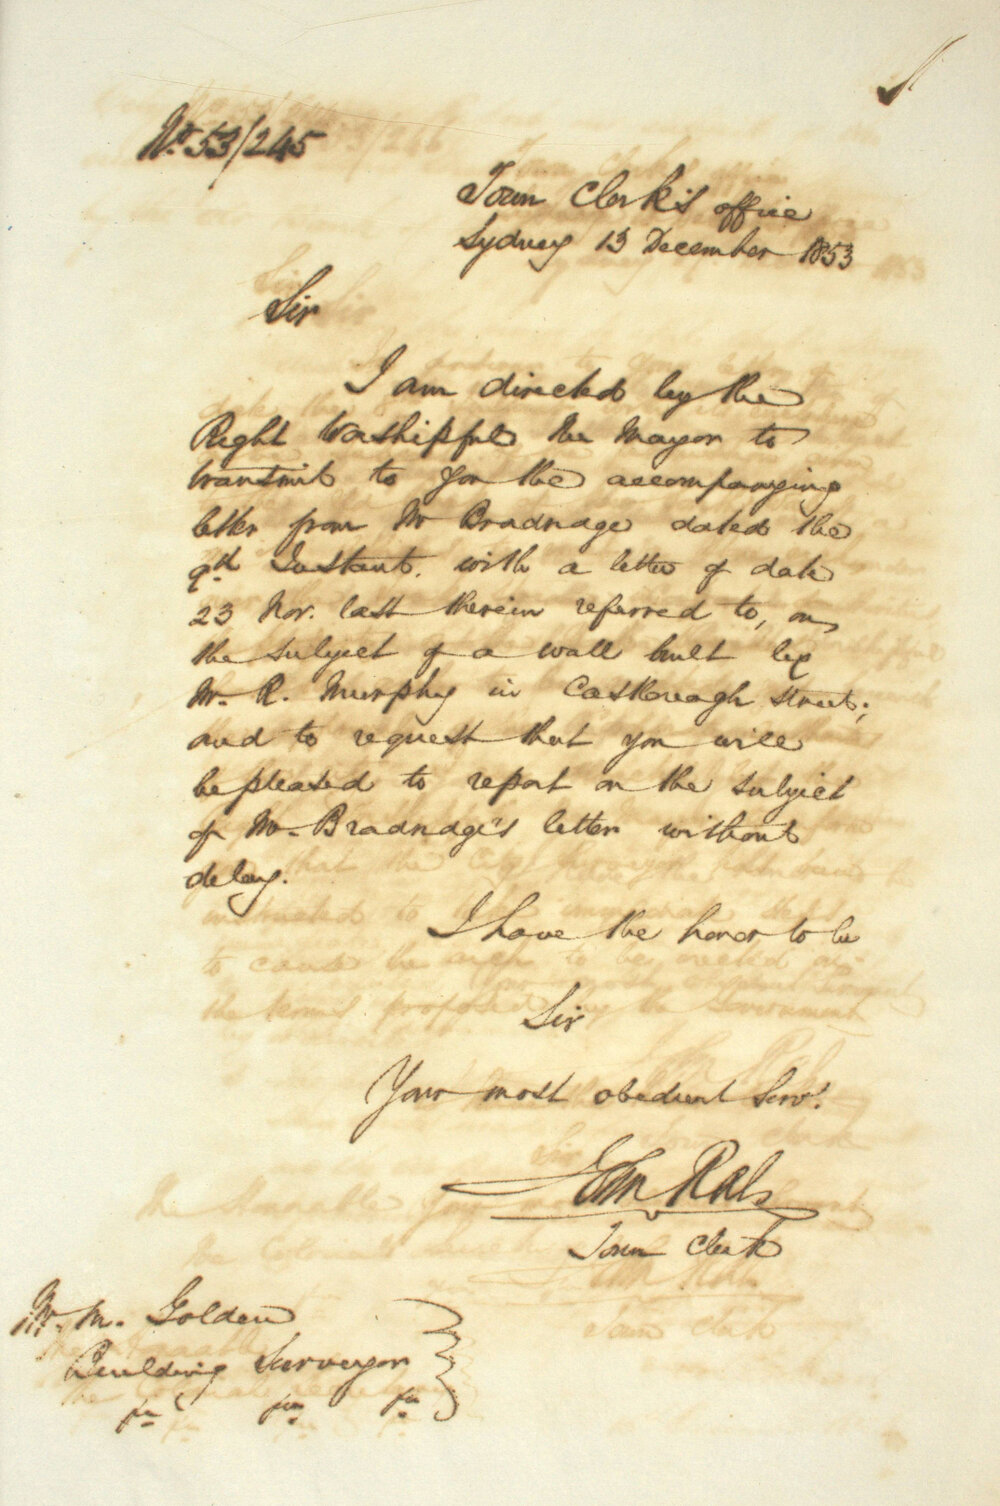 No. 53/245
Town Clerk's office
Sydney 13 December 1853
Sir
I am directed by the
Right Worshipful the Mayor to
transmit to you the accompanying
letter from Mr Bradridge dated the
9th Instant. with a letter of date
23 Nov. last therein referred to, on
the subject of a wall built by
Mr. R. Murphy in Castlereagh Street;
and to request that you will
be pleased to report on the subject
of Mr. Bradridge's letter without
delay.
I have the honor to be
Sir
Your most obedient Servt.
John Rae
Town Clerk
Mr. M. Golden
Building Surveyor